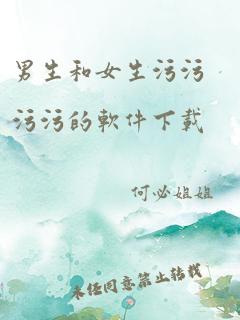 男生和女生污污
污污的軟件下载
何必姐姐
未经同意禁止转载